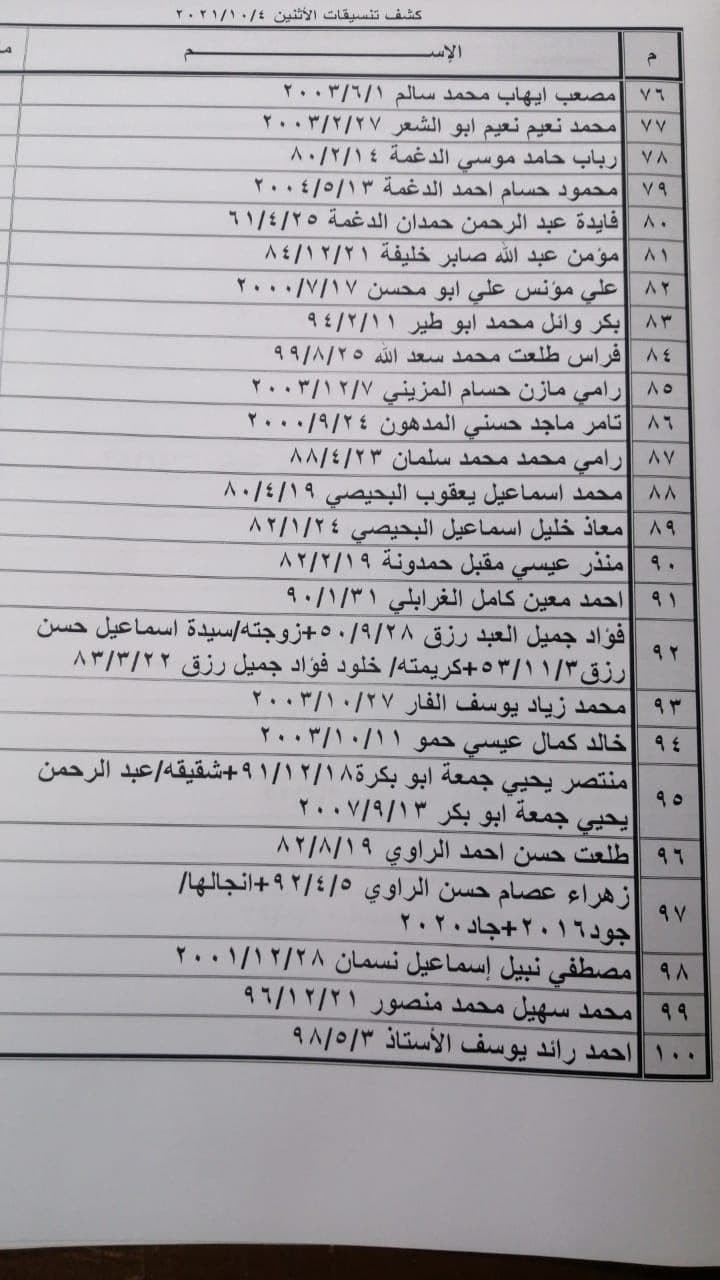 كشف تنسيقات الأثنين ٢٠٢١/١٠/٤
م الإســـــــــــــــــم
٧٦ مصعب ايهاب محمد سالم ٢٠٠٣/٦/١
٧٧ محمد نعيم نعيم ابو الشعر ٢٠٠٣/٢/٢٧
٧٨ رباب حامد موسي الدغمة ٨٠/٢/١٤
٧٩ محمود حسام احمد الدغمة ٢٠٠٤/٥/١٣
٨٠ فايدة عبد الرحمن حمدان الدغمة ٦١/٤/٢٥
٨١ مؤمن عبد الله صابر خليفة ٨٤/١٢/٢١
٨٢ علي مؤنس علي ابو محسن ٢٠٠٠/٧/١٧
٨٣ بكر وائل محمد ابو طير ٩٤/٢/١١
٨٤ فراس طلعت محمد سعد الله ٩٩/٨/٢٥
٨٥ رامي مازن حسام المزيني ٢٠٠٣/١٢/٧
٨٦ تامر ماجد حسني المدهون ٢٠٠٠/٩/٢٤
٨٧ رامي محمد محمد سلمان ٨٨/٤/٢٣
٨٨ محمد اسماعيل يعقوب البحيصي ٨٠/٤/١٩
٨٩ معاذ خليل اسماعيل البحيصي ٨٢/١/٢٤
٩٠ منذر عيسي مقبل حمدونة ٨٢/٢/١٩
٩١ احمد معين كامل الغرابلي ٩٠/١/٣١
٩٢ فؤاد جميل العبد رزق ٥٠/٩/٢٨+زوجته/سيدة اسماعيل حسن
رزق٥٣/١١/٣+كريمته/ خلود فؤاد جميل رزق ٨٣/٣/٢٢
٩٣ محمد زياد يوسف الفار ٢٠٠٣/١٠/٢٧
٩٤ خالد كمال عيسي حمو ٢٠٠٣/١٠/١١
٩٥ منتصر يحيي جمعة ابو بكرة٩١/١٢/١٨+شقيقه/عبد الرحمن
يحيي جمعة ابو بكر ٢٠٠٧/٩/١٣
٩٦ طلعت حسن احمد الراوي ٨٢/٨/١٩
٩٧ زهراء عصام حسن الراوي ٩٢/٤/٥+انجالها/
جود٢٠١٦+جاد٢٠٢٠
٩٨ مصطفي نبيل إسماعيل نسمان ٢٠٠١/١٢/٢٨
٩٩ محمد سهيل محمد منصور ٩٦/١٢/٢١
١٠٠ احمد رائد يوسف الأستاذ ٩٨/٥/٣